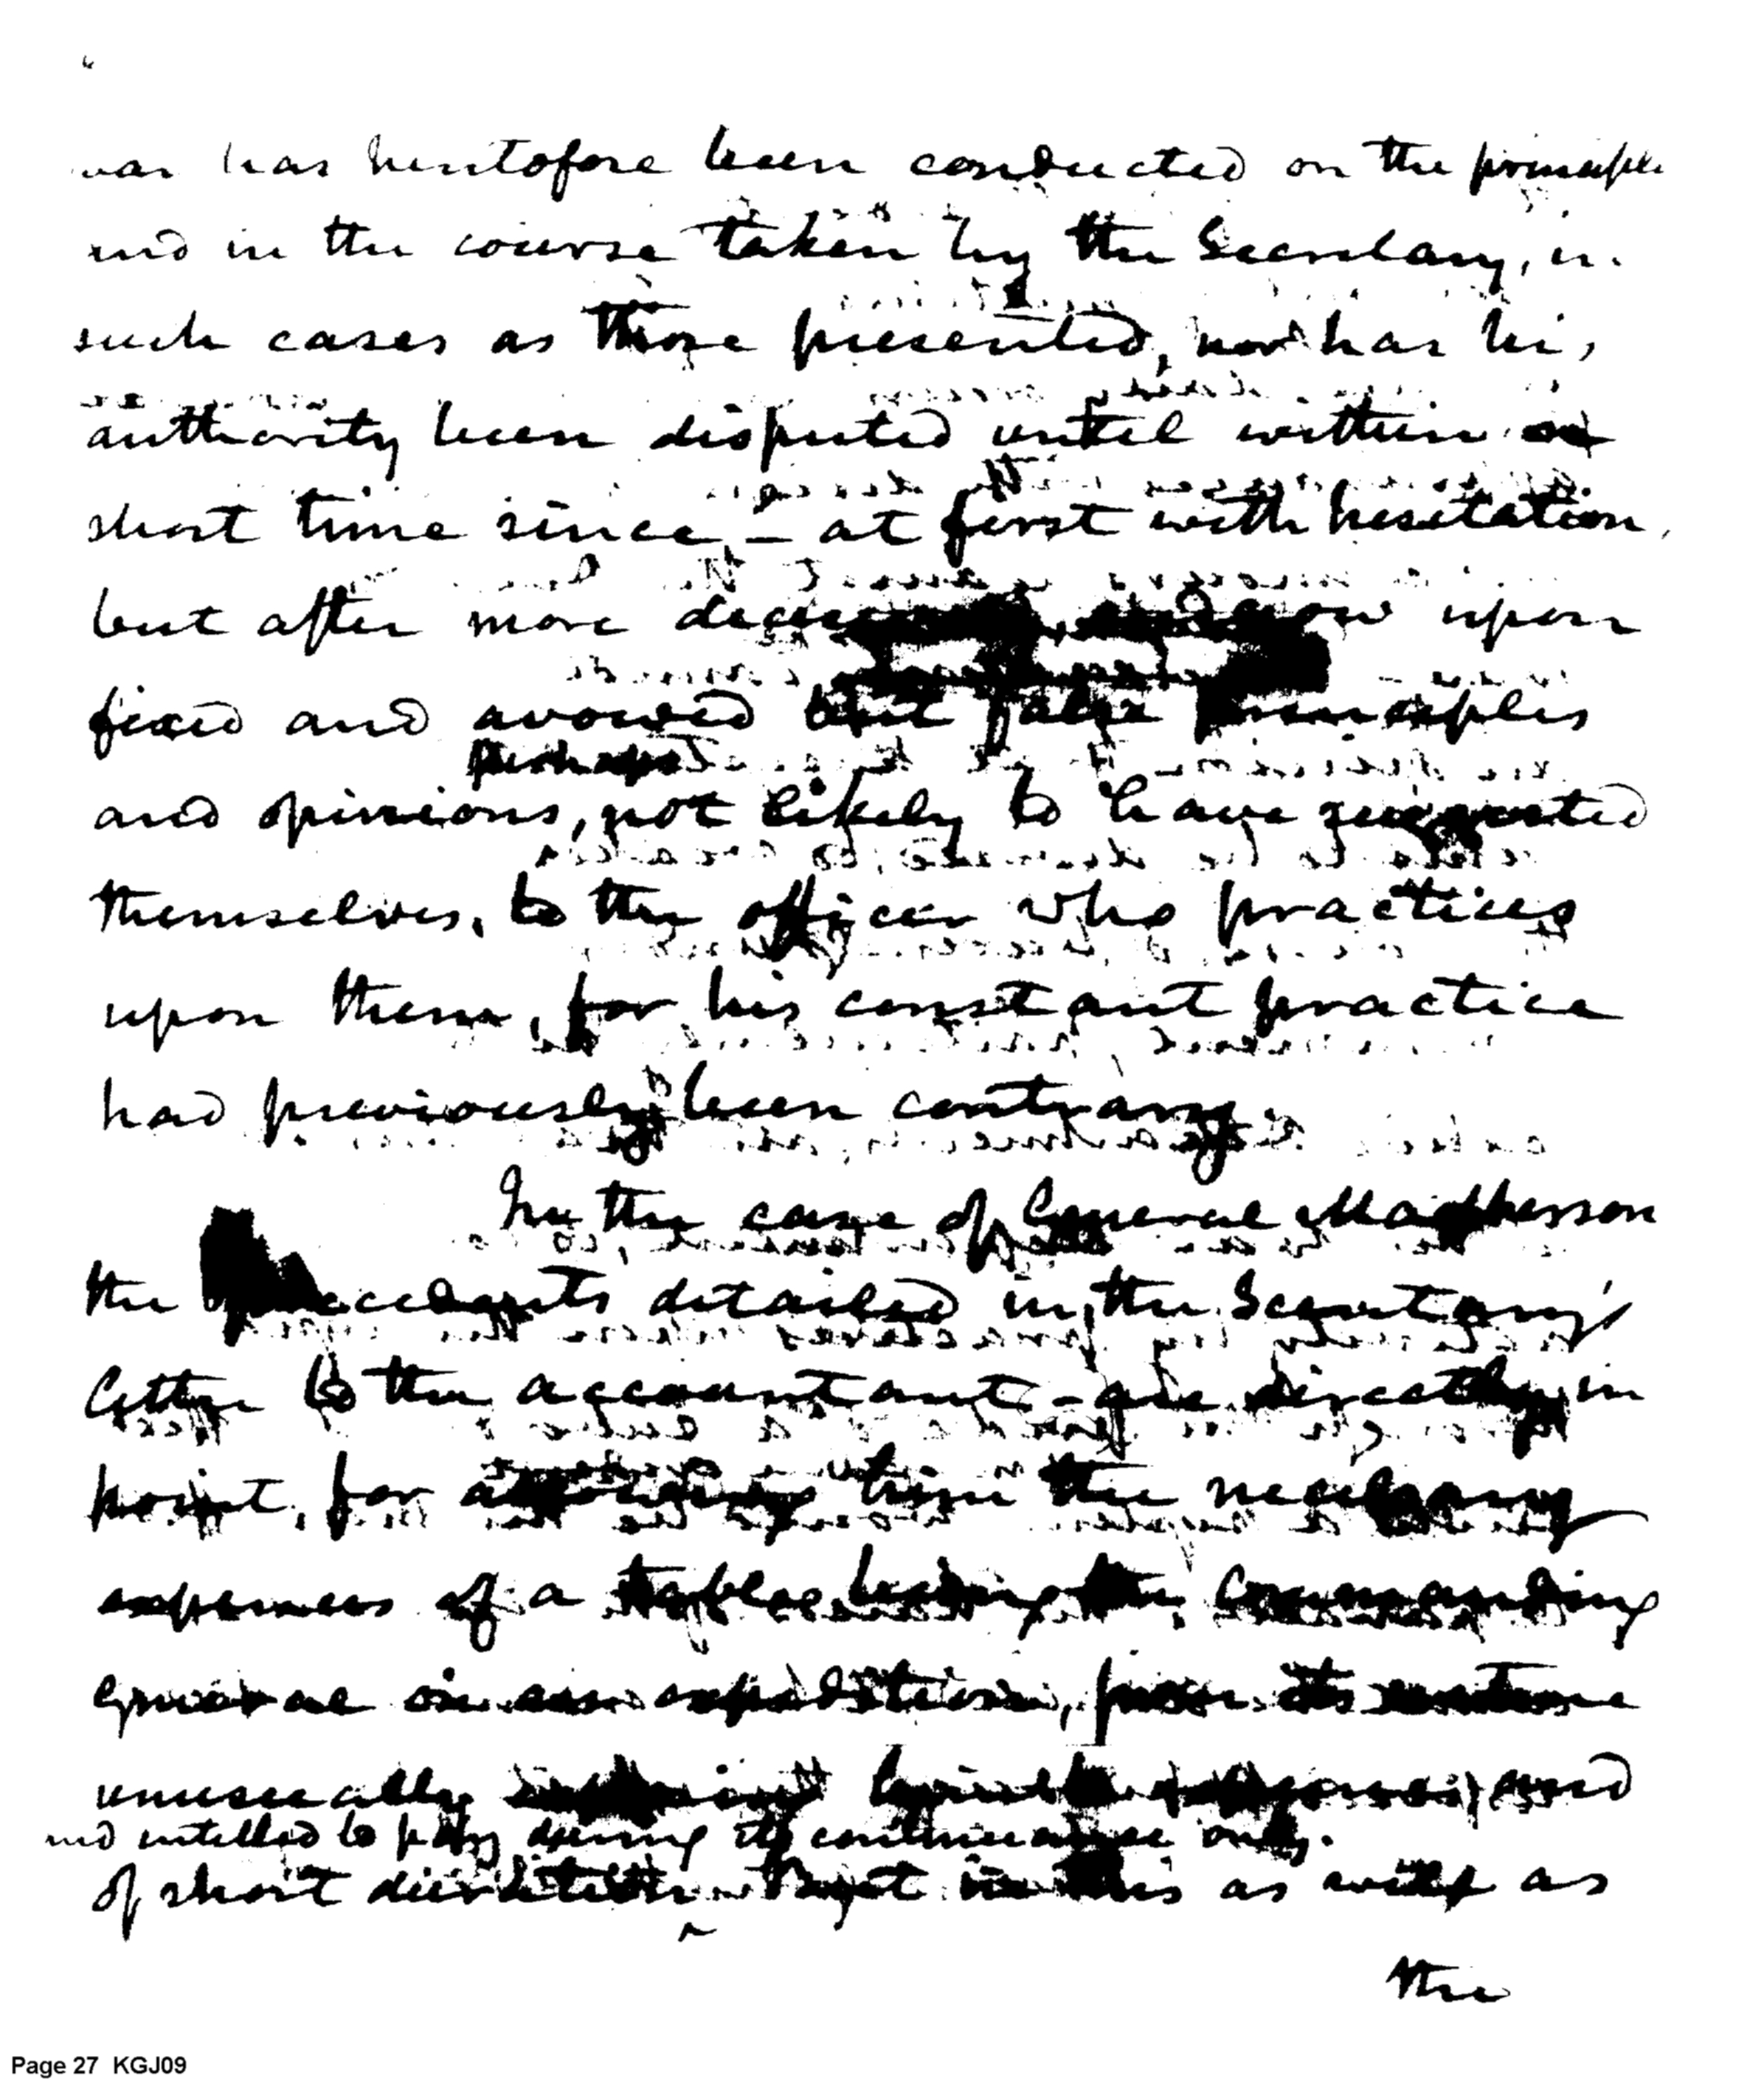 war has heretofore been conducted on the principle
and in the course taken by the Secretary, in
such cases as those presented, nor has his
authority been disputed until within a
short time since, — at first with hesitation,
but after more now upon
fixed and avowed but false principles
perhaps
and opinions, not likely to have suggested
themselves, to the officer who practices
upon them, for his constant practice
had previously been contrary.
In the case of General MacPherson
the precedents detailed in the Secretary's
letter to the accountant - are directly in
point, for allowing him the necessary
expenses of a table, being the commanding
general on an expedition, from its nature
unusually and
and intitled to pay during its continuance only.
of short duration. But in this as well as
the
Page 27 KGJ09